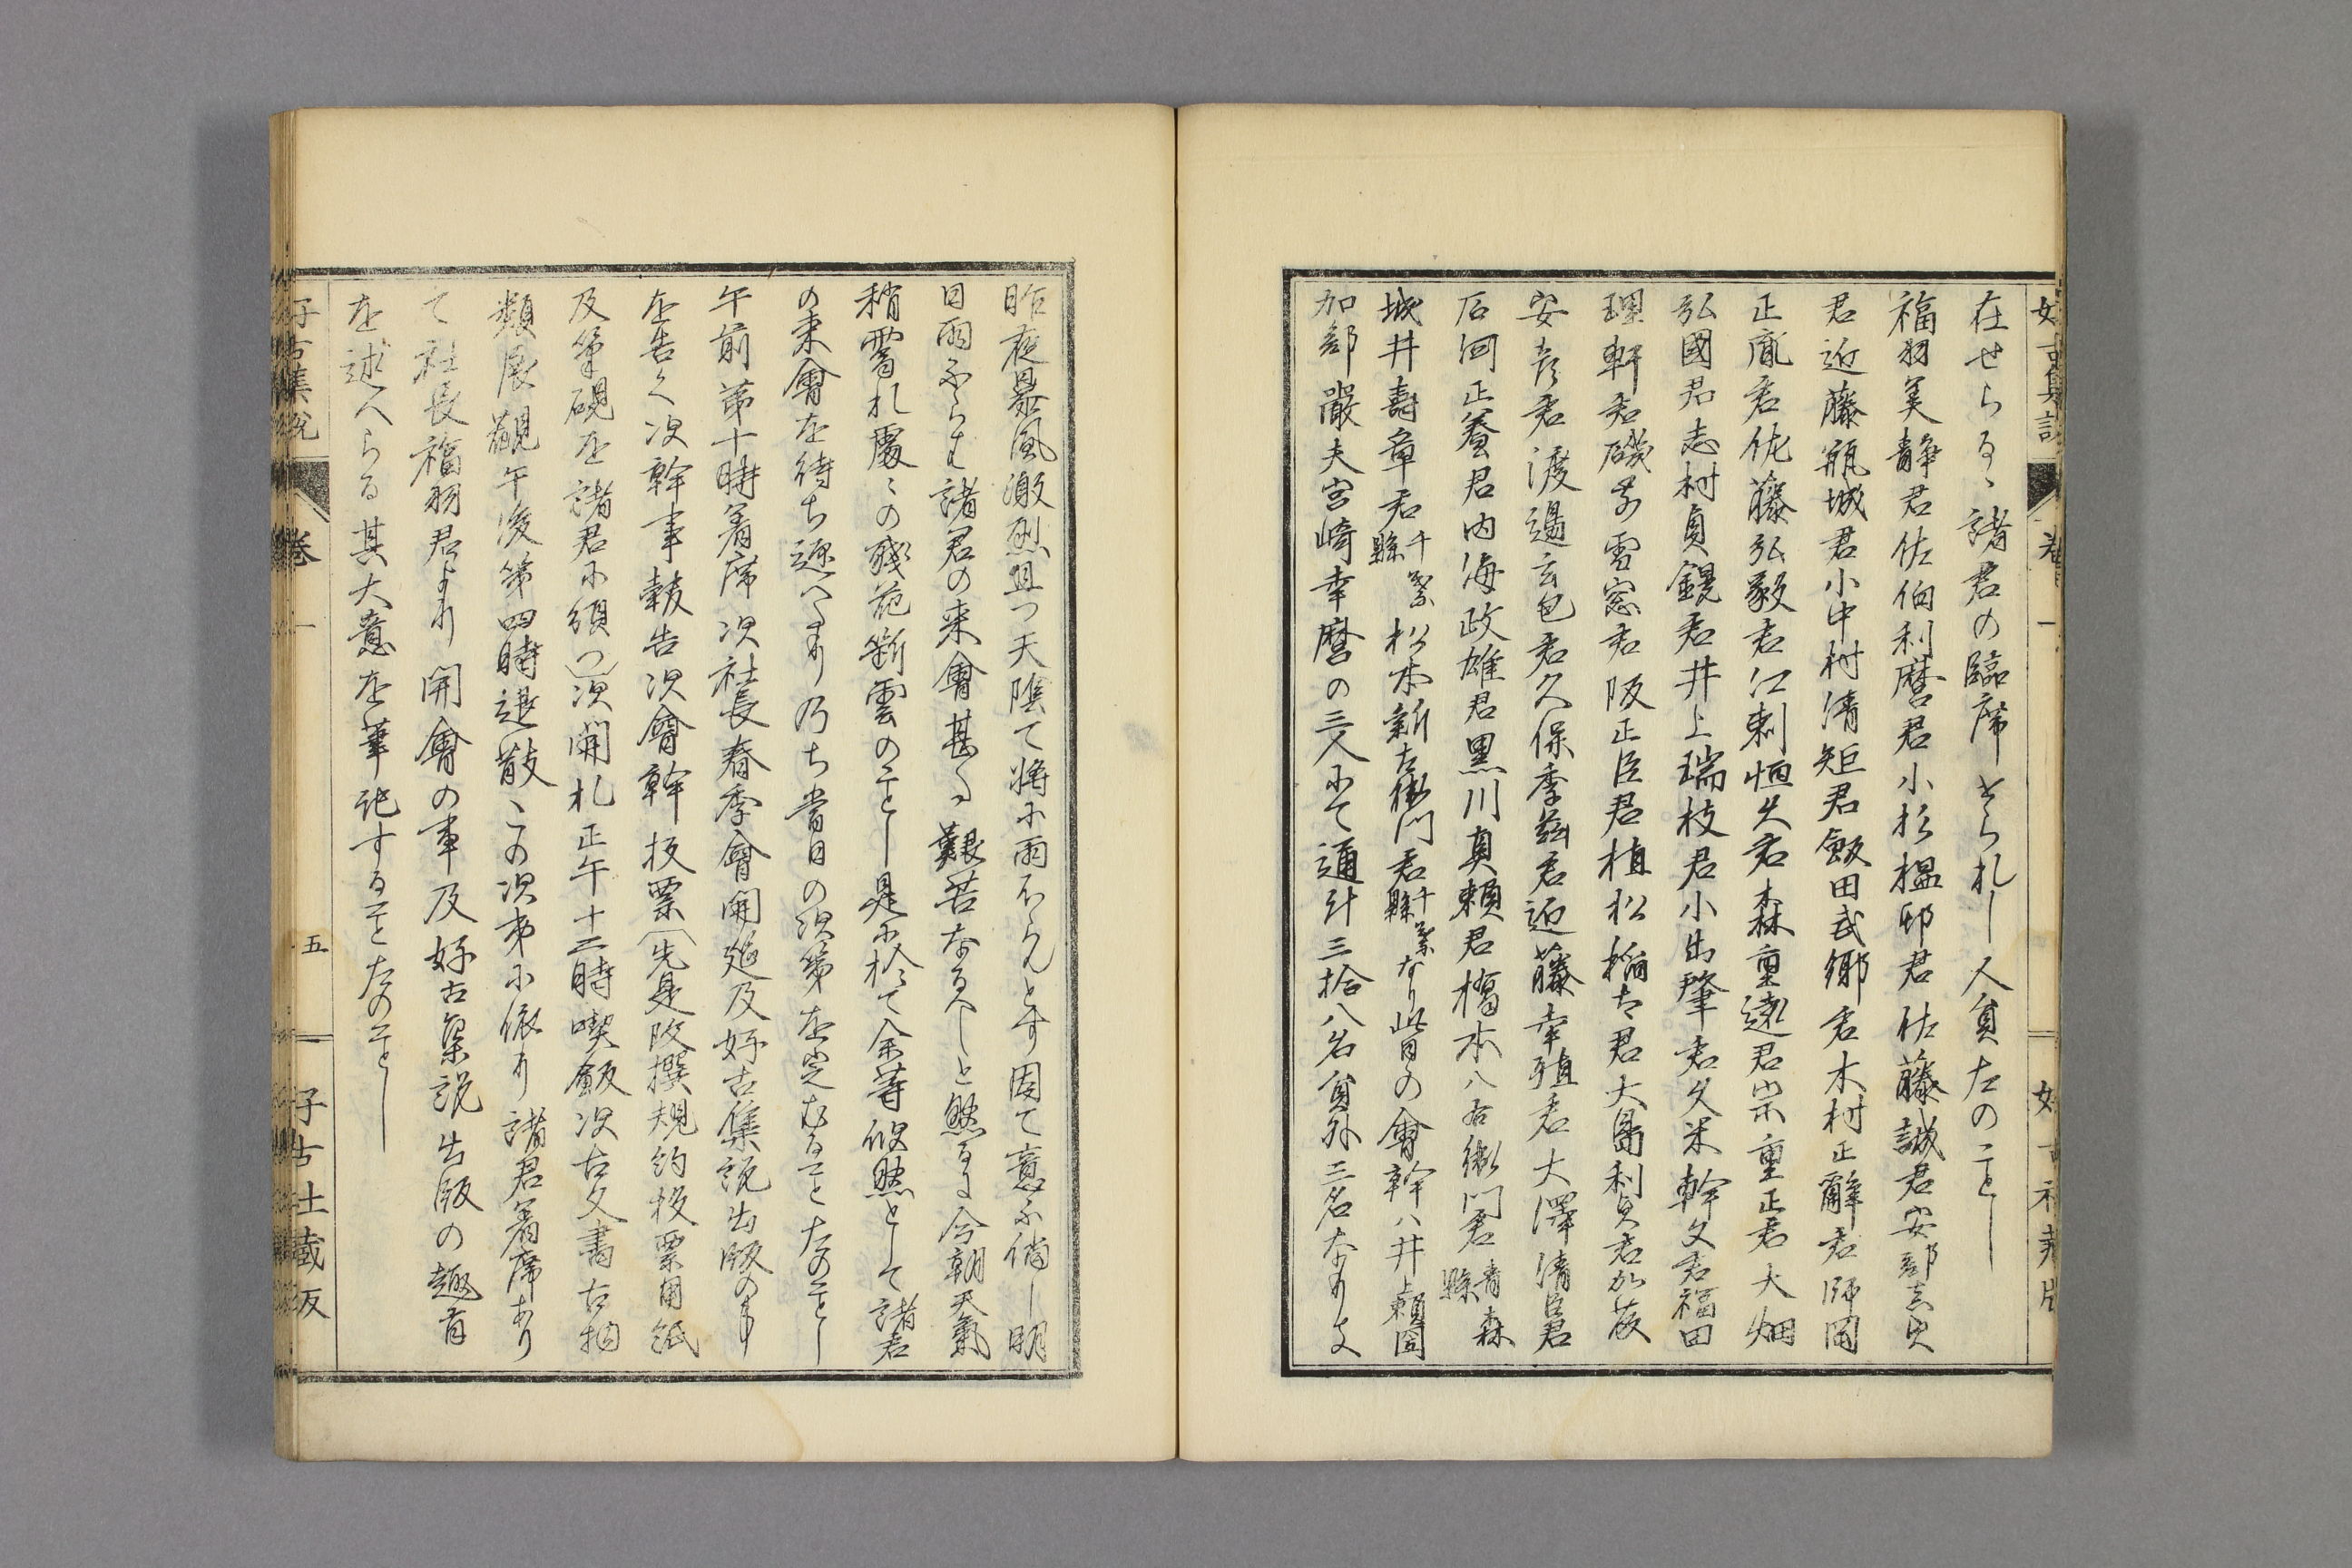 好古集説
卷一
好古社蔵版
在せらるゝ諸君の臨席せられし人員左のことし
福羽美静君佐伯利麿君小杉榲邨君佐藤誠君安部真貞
君近藤瓶城君小中村清矩君飯田武郷君木村正辭君師岡
正胤君佐藤弘毅君江刺恒久君森重遠君宗重正君大畑
弘國君志村貞鎫君井上瑞枝君小出肇君久米幹文君福田
理軒君磯部雪窓君阪正臣君植松稲太君大島利貞君加蔽
安彦君渡邉玄包君久保季茲君近藤幸殖君大澤清臣君
石河正養君内海政雄君黒川真頼君橋本八右衛門君青森縣
城井壽章君千葉縣松本新左衛門君千葉縣なり此日の會幹ハ井上頼圀
加部嚴夫宮崎幸麿の三人にて通計三拾八名員外三名なりき
昨夜暴風激烈且つ天陰て將に雨ふらんとす因て意に備し明
日雨ふらは諸君の来會甚た艱苦なるへしと然るに今朝天氣
稍霽れ處々の残花斷雲のことし是に於て余等悠然として諸君
の来會を待ち迎へたり乃ち當日の次第を定むること左のことし
午前第十時着席次社長春季會開筵及好古集説出版の事
を告く次幹事報告次會幹投票(先是改撰規約投票用紙
及筆硯を諸君に頒つ)次開札正午十二時喫飯次古文書古物
類展觀午後第四時退散この次第に依り諸君着席あり
て社長福羽君より開會の事及好古集説出版の趣旨
を述へらる其大意を筆記すること左のことし
好古集説
卷一
五
好古社蔵版